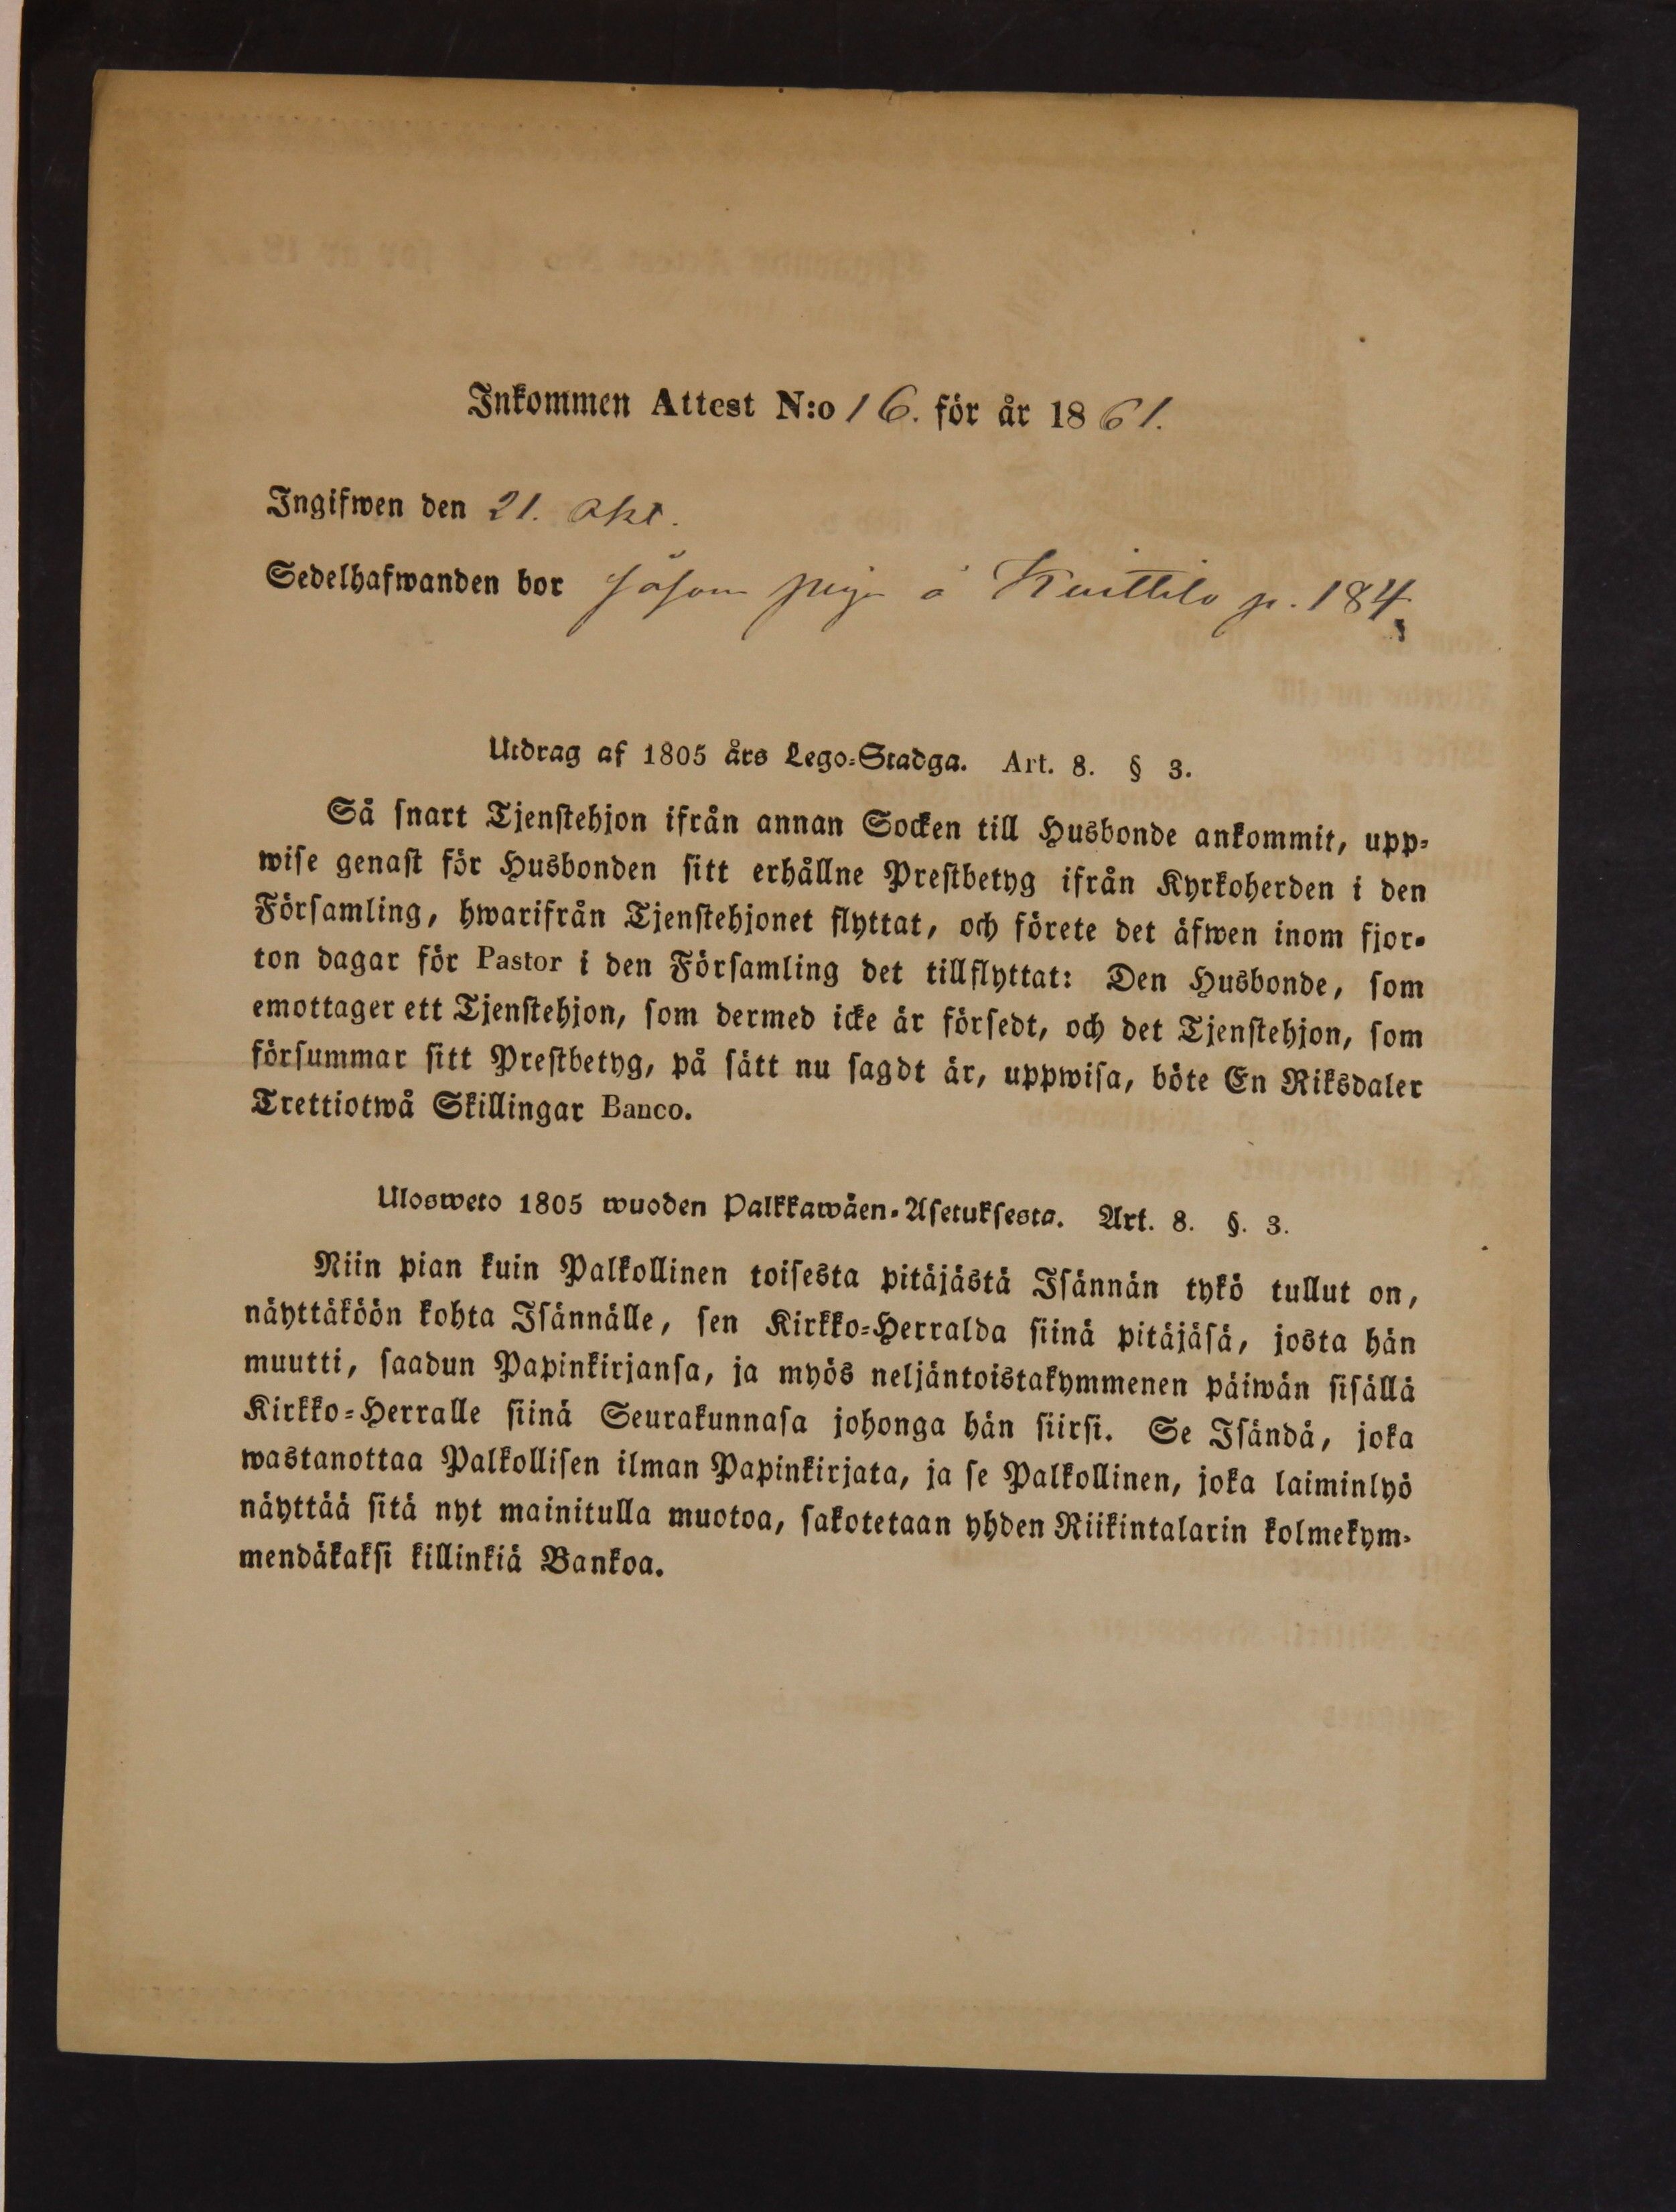 Inkommen Attest N:o 16. för år 1861.
Ingifwen den 21. Okt.
Sedelhafwanden bor såsom piga å Kuittila p. 184.
Utdrag af 1805 års Lego-Stadga. Art. 8. § 3.
Så snart Tjenstehjon ifrån annan Socken till Husbonde ankommit, upp-
wise genast för Husbonden sitt erhållne Prestbetyg ifrån Kyrkoherden i den
Församling, hwarifrån Tjenstehjonet flyttat, och förete det äfwen inom fjor-
ton dagar för Pastor i den Församling det tillflyttat: Den Husbonde, som
emottager ett Tjenstehjon, som dermed icke är försedt, och det Tjenstehjon, som
försummar sitt Prestbetyg, på sätt nu sagdt är, uppwisa, böte En Riksdaler
Trettiotwå Skillingar Banco.
Ulosweto 1805 wuoden Palkkawäen-Asetuksesta. Art. 8. §. 3.
Niin pian kuin Palkollinen toisesta pitäjästä Isännän tykö tullut on,
näyttäköön kohta Isännälle, sen Kirkko-Herralda siinä pitäjäsä, josta hän
muutti, saadun Papinkirjansa, ja myös neljäntoistakymmenen päiwän sisällä
Kirkko-Herralle siinä Seurakunnasa johonga hän siirsi. Se Isändä, joka
wastanottaa Palkollisen ilman Papinkirjata, ja se Palkollinen, joka laiminlyö
näyttää sitä nyt mainitulla muotoa, sakotetaan yhden Riikintalarin kolmekym-
mendäkaksi killinkiä Bankoa.